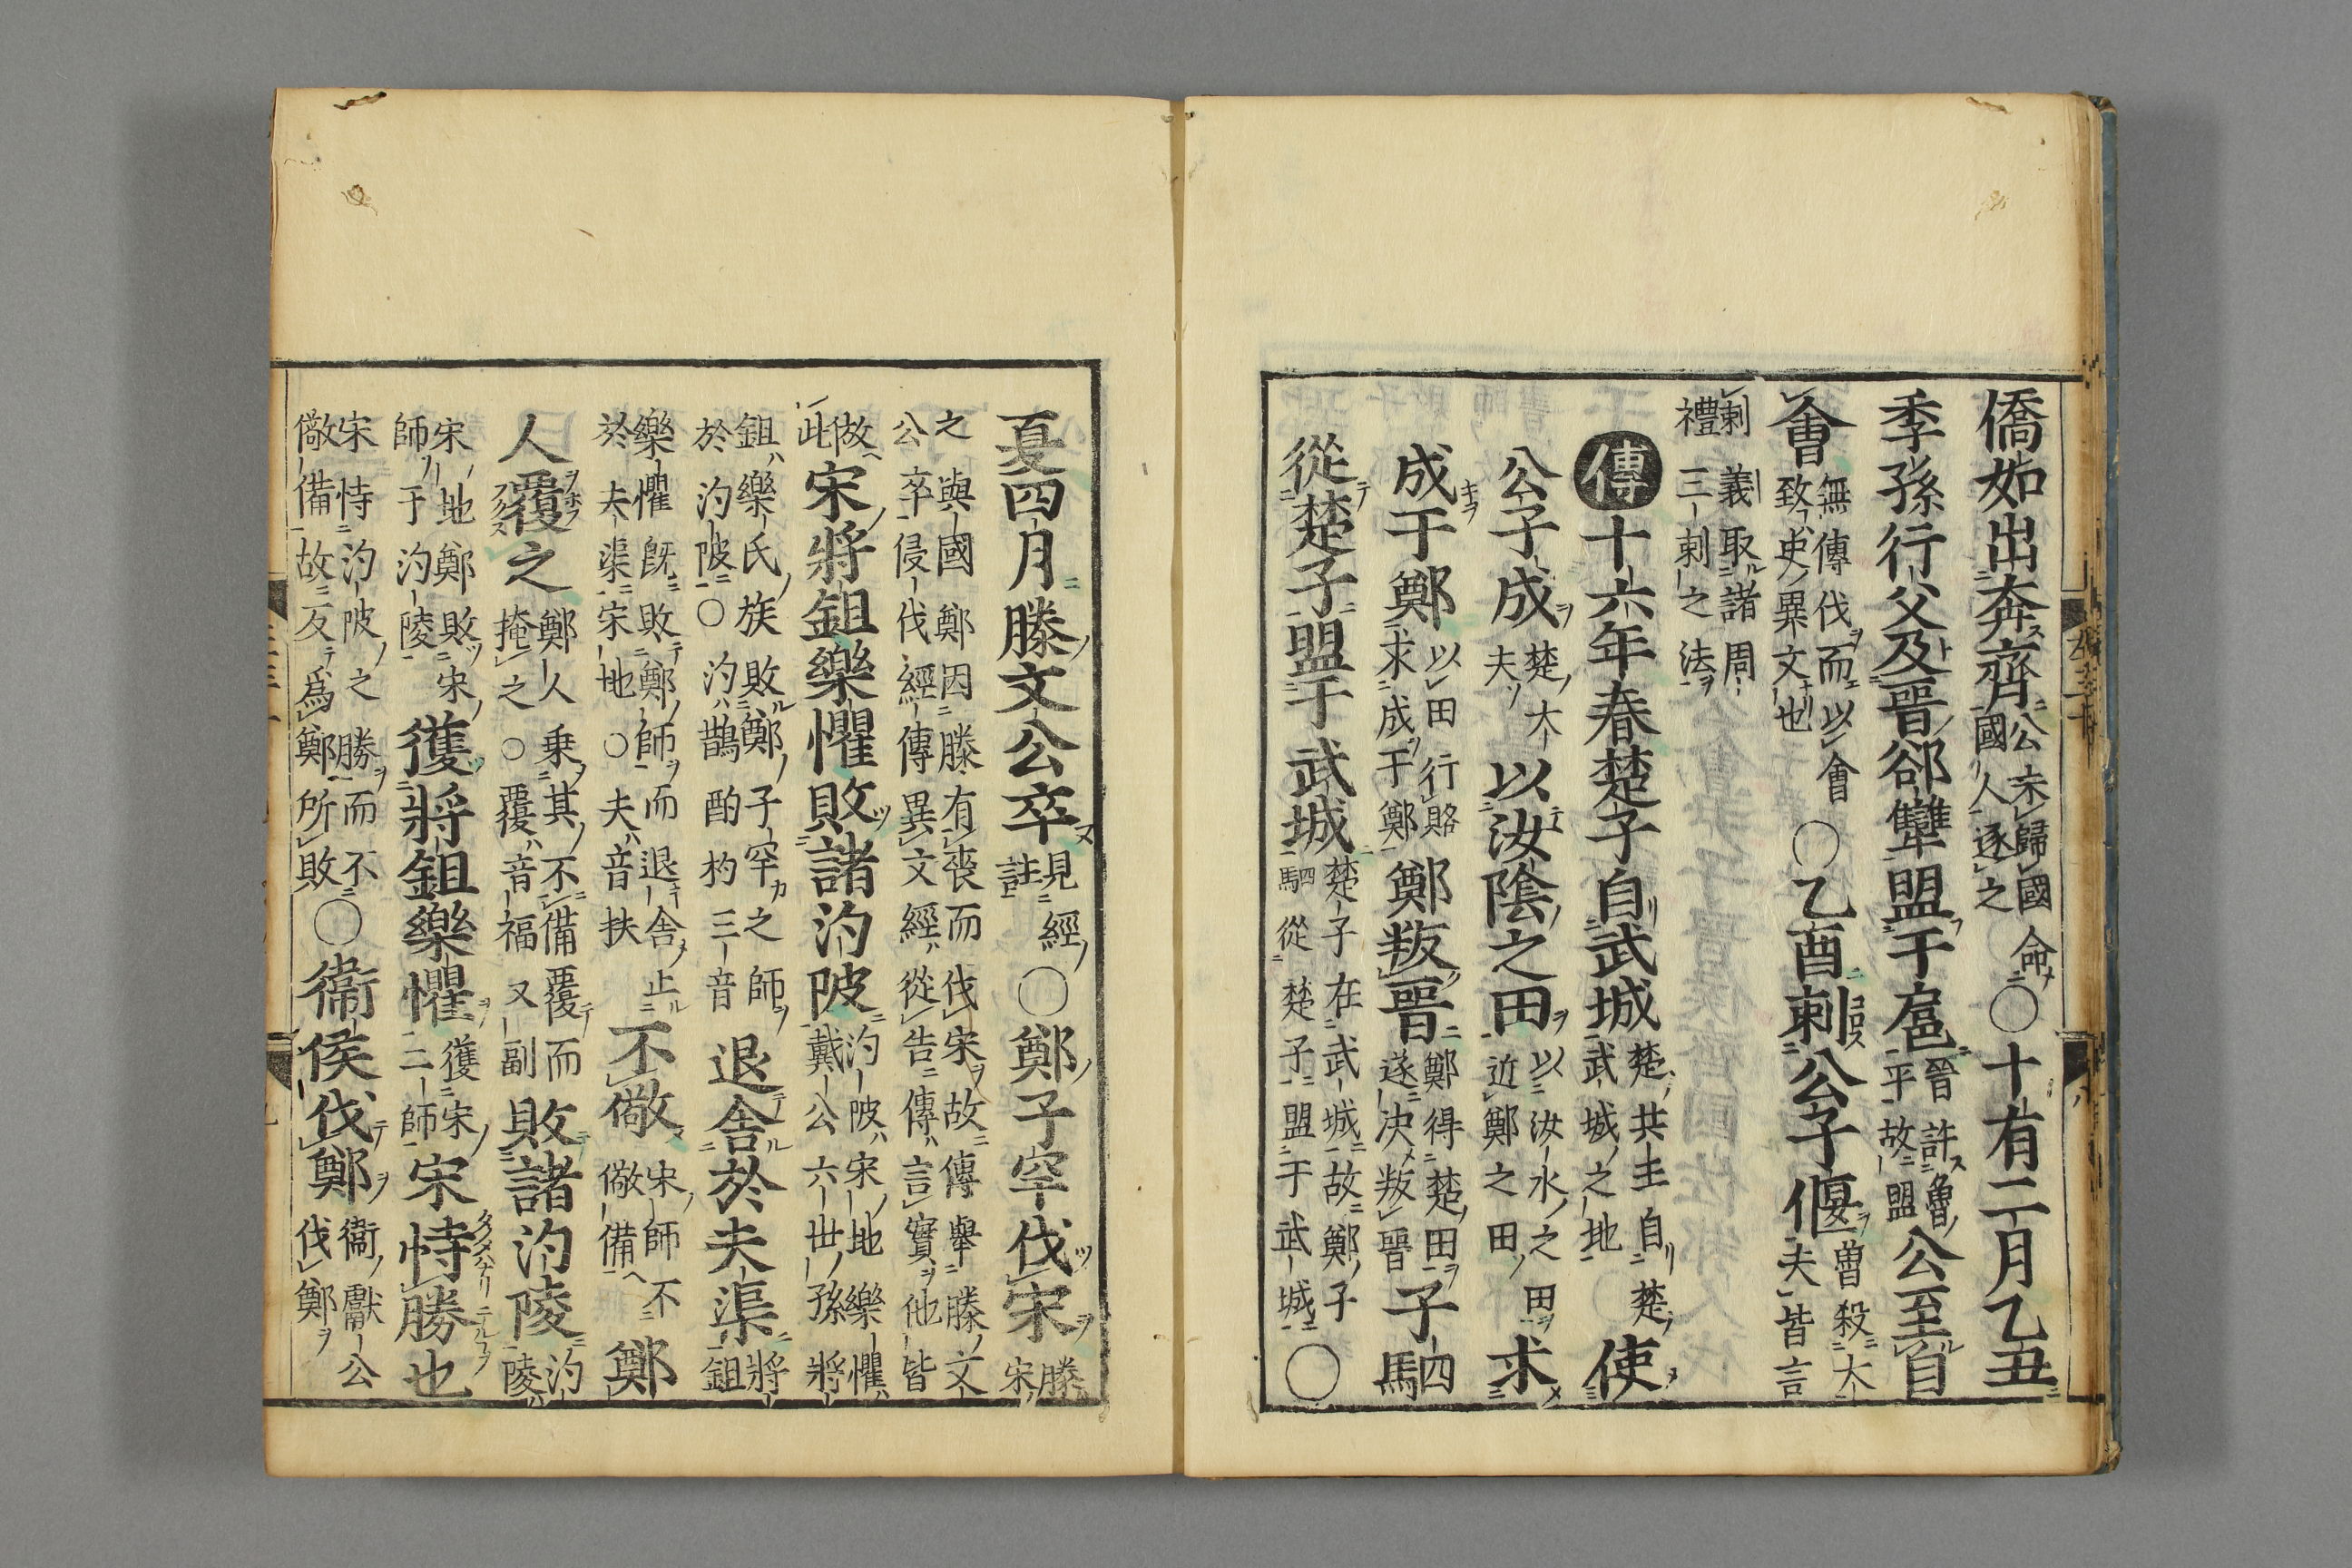 僑如出奔齊公未歸國命國人逐之○十有二月乙丑
季孫行父及晉郤犨盟于扈晉許魯平故盟公至自
會無傳伐而以會致史異文也○乙酉刺公子偃魯殺大夫皆言
刺義取諸周禮三刺之法
傳十六年春楚子自武城楚共王自楚武城之地使
公子成楚大夫以汝陰之田以汝水之田近鄭之田求
成于鄭以田行賂求成于鄭鄭叛晉鄭得楚田遂决叛晉子駟
從楚子盟于武城楚子在武城故鄭子駟從楚子盟于武城○
夏四月滕文公卒見經註○鄭子罕伐宋滕宋
之與國鄭因滕有喪而伐宋故傳舉滕文公卒侵伐經傳異文經從告傳言實他皆
故此宋將鉏樂懼敗諸汋陂汋陂宋地樂懼戴公六世孫將
鉏樂氏族敗鄭子罕之師於汋陂○汋鵲酌杓三音退舍於夫渠將鉏
樂懼既敗鄭師而退舍止於夫渠宋地○夫音扶不儆宋師不儆備鄭
人覆之鄭人乘其不備覆而掩之○覆音福又副敗諸汋陵汋陵
宋地鄭敗宋師于汋陵獲將鉏樂懼獲宋二師宋恃勝也
宋恃汋陂之勝而不儆備故反爲鄭所敗○衞侯伐鄭衞獻公伐鄭